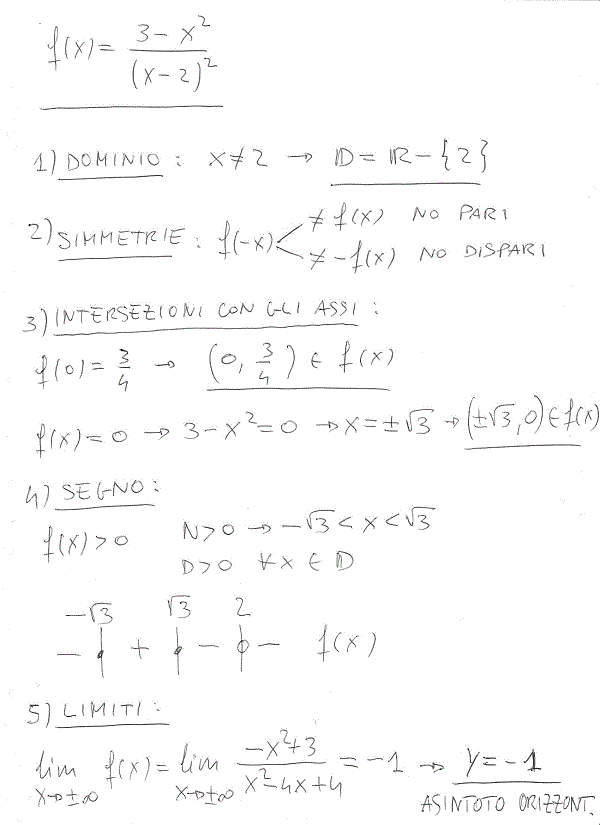 f(x) = (3 - x²)/(x - 2)²
1) DOMINIO : x ≠ 2 → D = R - {2}
2) SIMMETRIE : f(-x) ≠ f(x) NO PARI
≠ -f(x) NO DISPARI
3) INTERSEZIONI CON GLI ASSI :
f(0) = 3/4 → (0, 3/4) ∈ f(x)
f(x) = 0 → 3 - x² = 0 → x = ±√3 → (±√3, 0) ∈ f(x)
4) SEGNO :
f(x) > 0 N > 0 → -√3 < x < √3
D > 0 ∀x ∈ D
-√3 √3 2
- + - - f(x)
5) LIMITI :
lim x→±∞ f(x) = lim x→±∞ (-x² + 3)/(x² - 4x + 4) = -1 → y = -1
ASINTOTO ORIZZONT.